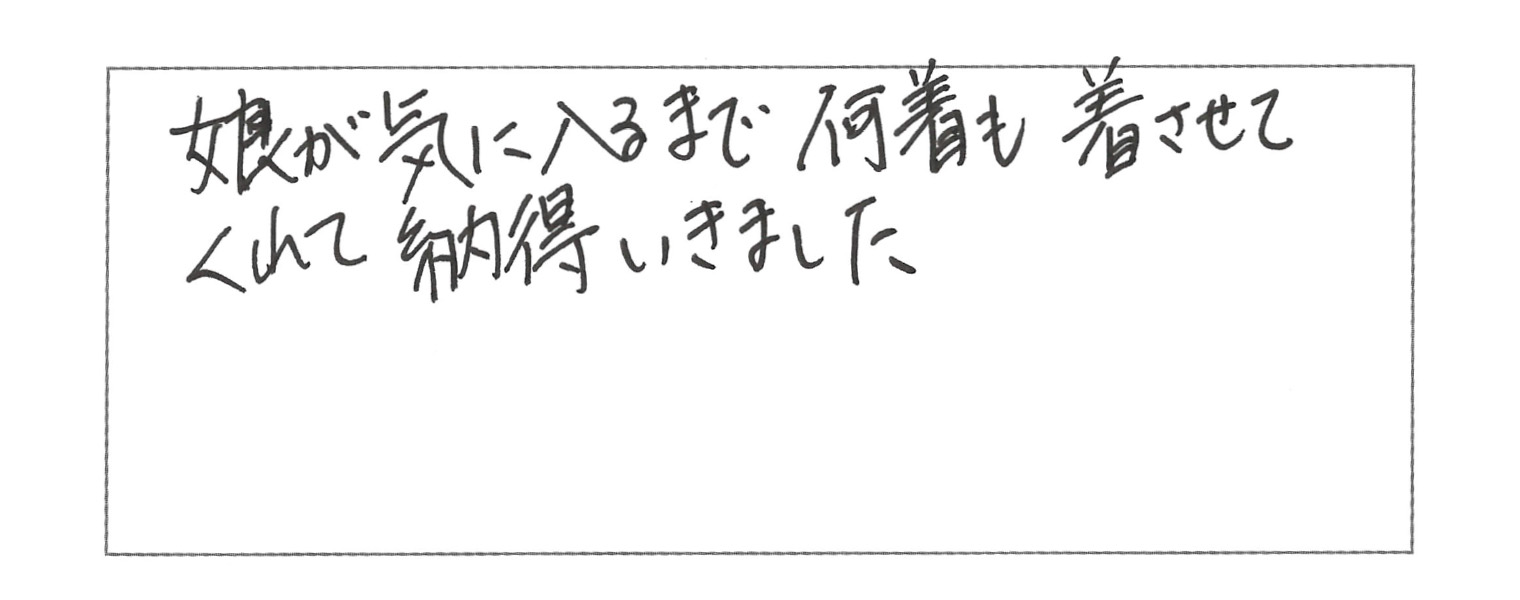 娘が気に入るまで 何着も 着させて
くれて 納得いきました